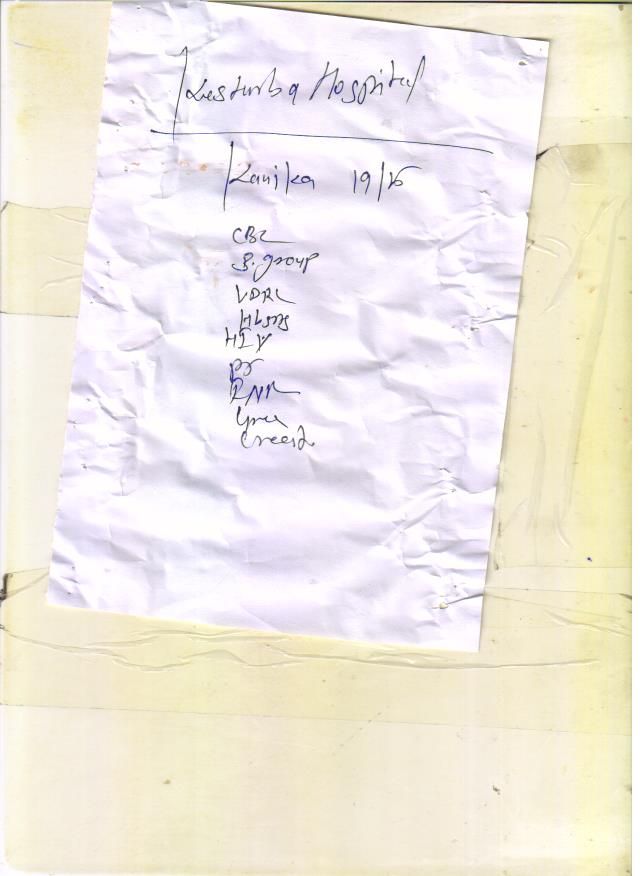 Kasturba Hospital
Kanika 19/F
CBC
B. group
VDRL
HbsAg
HIV
PT
INR
Urea
Creat